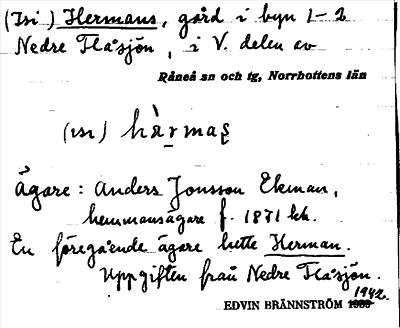 (Isi) Hermans, gård i byn 1-2
Nedre Flåsjön, i V. delen av
Råneå sn och tg, Norrbottens län
(ısı) hà̱rmas
Ägare: Anders Jonsson Ekman,
hemmansägare f. 1871 kk.
En föregående ägare hette Herman.
Uppgiften från Nedre Flåsjön.
1942.
EDVIN BRÄNNSTRÖM 1933